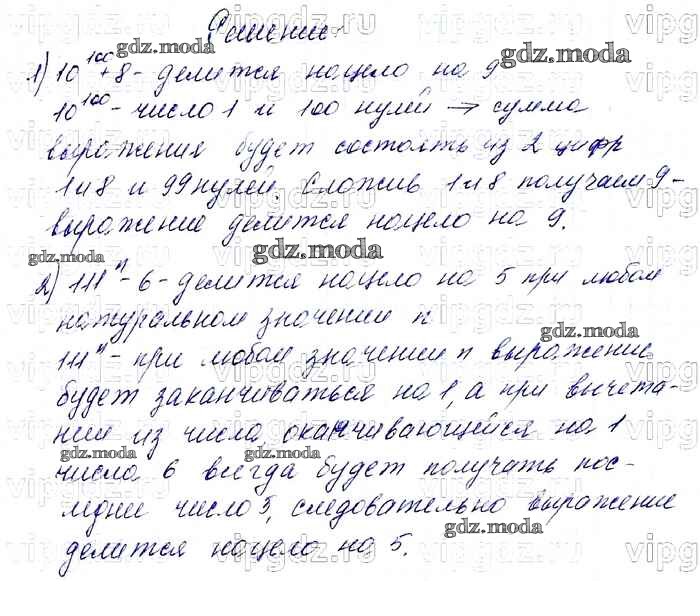 Решение.
1) 10¹⁰⁰ + 8 - делится нацело на 9
10¹⁰⁰ - число 1 и 100 нулей → сумма
выражения будет состоять из 2 цифр
1 и 8 и 99 нулей. Сложив 1 и 8 получаем 9 -
выражение делится нацело на 9.
2) 111ⁿ - 6 - делится нацело на 5 при любом
натуральном значении n
111ⁿ - при любом значении n выражение
будет заканчиваться на 1, а при вычета-
нии из числа оканчивающейся на 1
числа 6 всегда будет получать пос-
ледни число 5, следовательно выражение
делится нацело на 5.
gdz.moda
gdz.moda
gdz.moda
gdz.moda
gdz.moda
gdz.moda
gdz.moda
gdz.moda
gdz.moda
vipgdz.ru